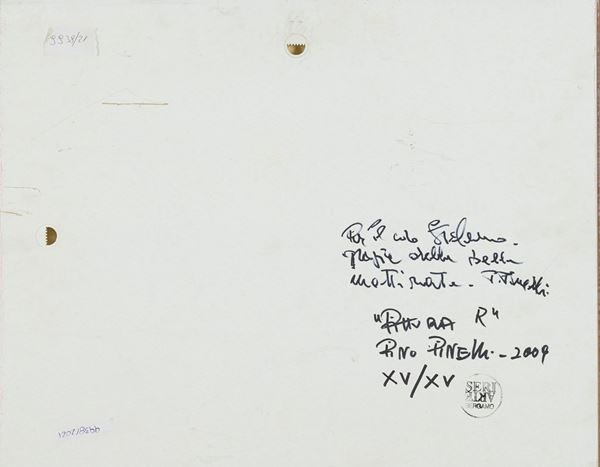 9938/21
Per il caro Stefano.
grazie della bella
mattinata. P. Pinelli.
"PITTURA R"
PINO PINELLI - 2009
XV/XV
SERI
ARTE
BERGAMO